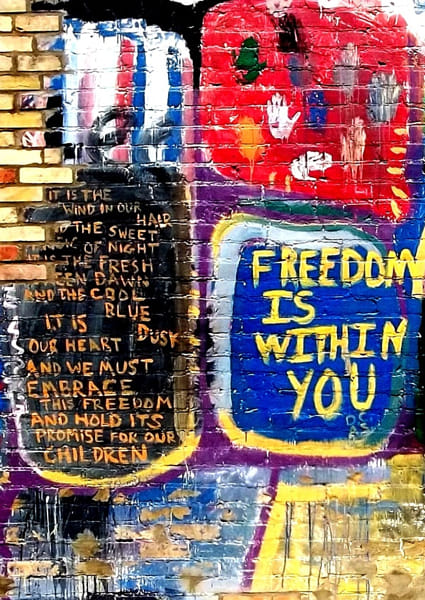 IT IS THE
WIND IN OUR
HAIR
THE SWEET
OF NIGHT
THE FRESH
DAWN
AND THE COOL
BLUE
DUSK
IT IS
OUR HEART
AND WE MUST
EMBRACE
THIS FREEDOM
AND HOLD ITS
PROMISE FOR OUR
CHILDREN
FREEDOM
IS
WITHIN
YOU